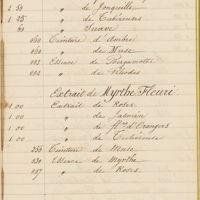 2 50 " de Jonquille
1 25 " de Tubéreuses
60 " Suave
060 Teinture d'Ambre
060 " de Musc
023 Essence de Bergamotte
022 " de Rhodes
Extrait de Myrthe Fleuri
1 00 Extrait de Roses
1 00 " de Jasmin
1 00 " de Fl.rs d'Oranger
1 00 " de Tubéreuse
250 Teinture de Musc
030 Essence de Myrthe
017 " de Roses